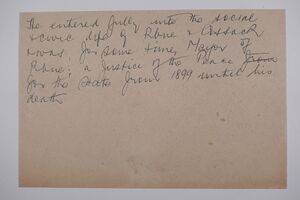 He entered fully into the social
& civic life of Roebourne & Cossack
was for some time, Mayor of
Roebourne; a Justice of the Peace from
for the State from 1899 until his
death